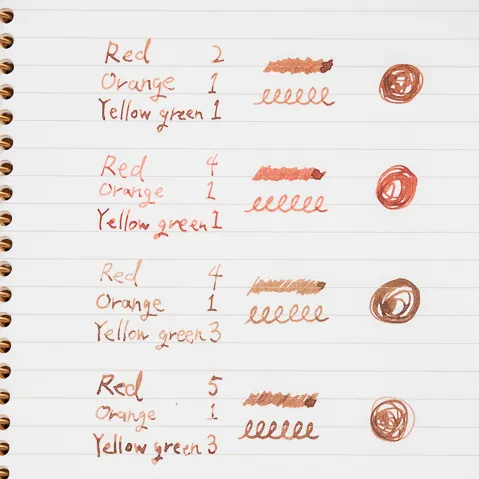 Red 2
Orange 1
Yellow green 1
Red 4
Orange 1
Yellow green 1
Red 4
Orange 1
Yellow green 3
Red 5
Orange 1
Yellow green 3